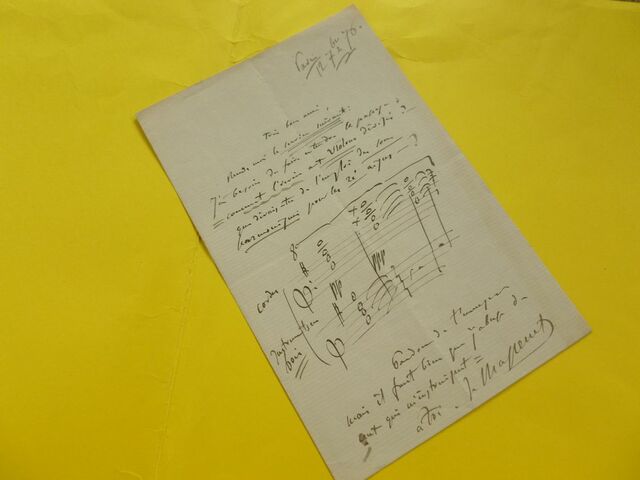 Paris
12
très bon ami,
rends moi le service suivant:
J'ai besoin de faire entendre le passage
comment l'écrire aux violons divisés?
que dirais-tu de l'emploi des sons
harmoniques pour les aigus?
8a
ppp
cordes
Instruments
bois
Pardon de t'ennuyer
mais il faut bien que j'abuse de
ceux qui m'instruisent =
a toi. J. Massenet